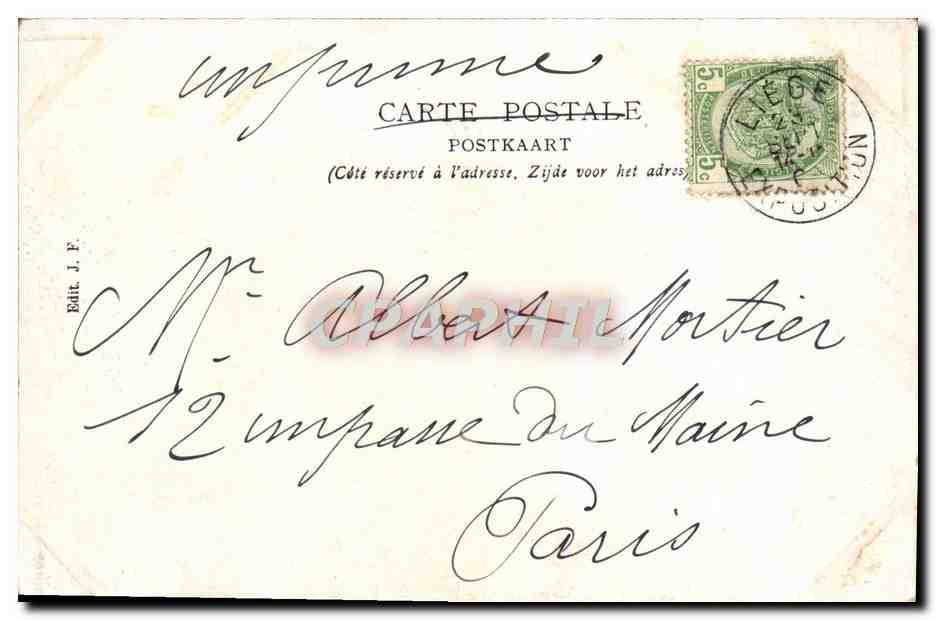 imprime
CARTE POSTALE
POSTKAART
(Côté réservé à l'adresse. Zijde voor het adres
5c
5c
LIÉGE
EXPOSITION
Edit. J. F.
Mr. Albert Mortier
CPAPHIL
12 impasse du Maine
Paris